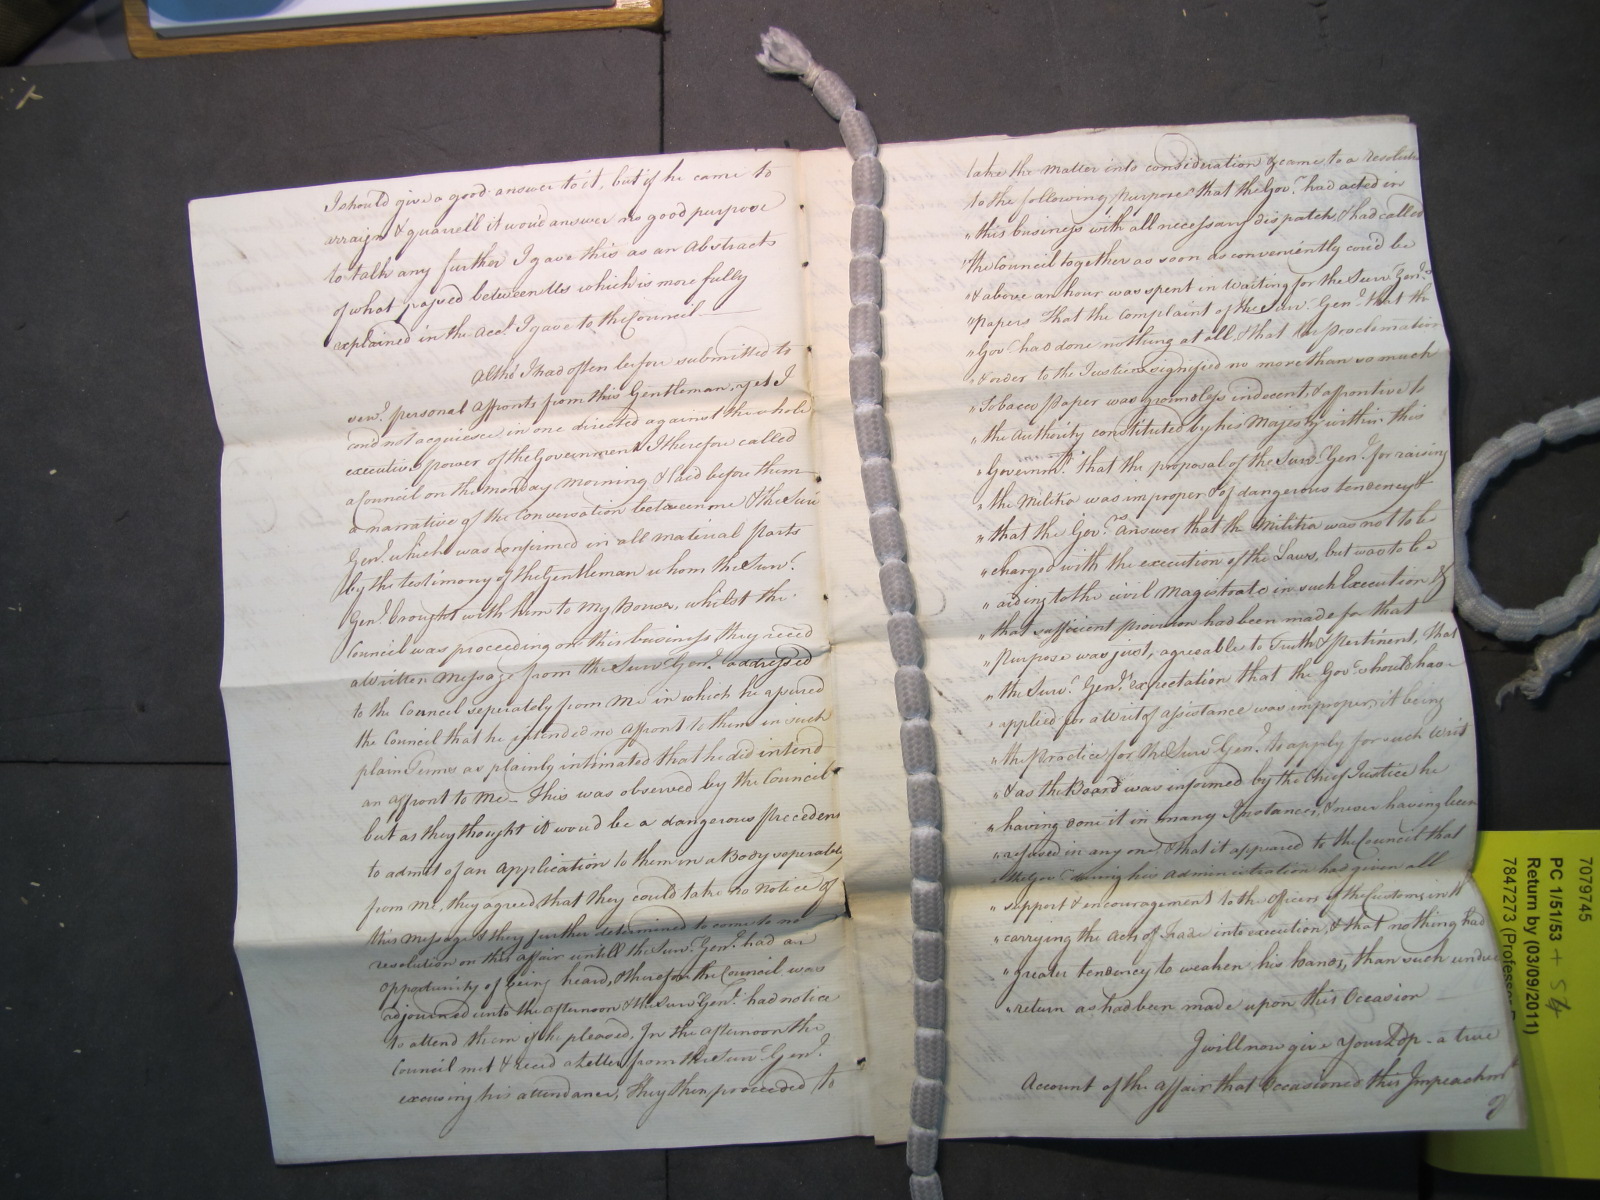 I should give a good answer to it, but if he came to
arraign & quarell it wou'd answer no good purpose
to talk any further I gave this as an Abstracts
of what passed between Us which is more fully
explained in the acc.t I gave to the Council
Altho' I had often before submitted to
sev.l personal Affronts from this Gentleman, yet I
cou'd not acquiesce in one directed against the whole
executive power of the Government I therefore called
a Council on the monday morning & laid before them
a narrative of the Conversation between me & the Surv.
Gen.l which was confirmed in all material Parts
by the testimony of the Gentleman whom the Surv.r
Gen.l brought with him to my house, whilst the
Council was proceeding on this business they rece'd
a Written Message from the Surv.r Gen.l addressed
to the Council seperately from Me in which he assured
the Council that he intended no Affront to them in such
plain Terms as plainly intimated that he did intend
an affront to Me — This was observed by the Council
but as they thought it wou'd be a dangerous Precedent
to admit of an Application to them in a Body seperately
from Me, they agreed that they could take no notice of
this Message & they further determined to come to no
resolution on this affair untill the Surv.r Gen.l had an
opportunity of being heard, & therefore the Council was
adjourned unto the afternoon & the Surv.r Gen.l had notice
to attend them if he pleased, In the afternoon the
Council met & rece'd a Letter from the Surv.r Gen.l
excusing his attendance, They then proceeded to
take the Matter into consideration & came to a resolution
to the following Purpose that the Gov.r had acted in
" this business with all necessary dispatch, & had called
" the Council together as soon as conveniently cou'd be
" & above an hour was spent in Waiting for the Surv.r Gen.ls
" Papers That the Complaint of the Surv.r Gen.l that the
" Gov.r had done nothing at all, & that his Proclamation
" & order to the Justices signified no more than so much
" Tobacco Paper was groundless indecent, & affrontive to
" the Authority constituted by his Majesty within this
" Governm.t that the proposal of the Surv.r Gen.l for raising
" the Militia was improper & of dangerous tendency &
" that the Gov.rs Answer that the Militia was not to be
" charged with the execution of the Laws, but was to be
" aiding to the civil Magistrate in such Execution &
" that sufficient provision had been made for that
" Purpose was just, agreable to Truth & pertinent, That
" the Surv.r Gen.ls expectation that the Gov.r should have
" applied for a Writ of assistance was improper, it being
" the Practice for the Surv.r Gen.l to apply for such Writ
" & as the Board was informed by the Chief Justice he
" having done it in many Instances, & never having been
" refused in any one & that it appeared to the Council that
" the Gov.r during his Administration has given all
" support & encouragement to the Officers of the Customs, in the
" carrying the Acts of Trade into execution, & that nothing had
" greater tendency to weaken his hands, than such undue
" return as had been made upon this Occasion
I will now give Your Ldp — a true
Account of the affair that Occasioned this Impeachm.t
7079745
PC 1/51/53 + 54
Return by (03/09/2011)
7847273 (Professor